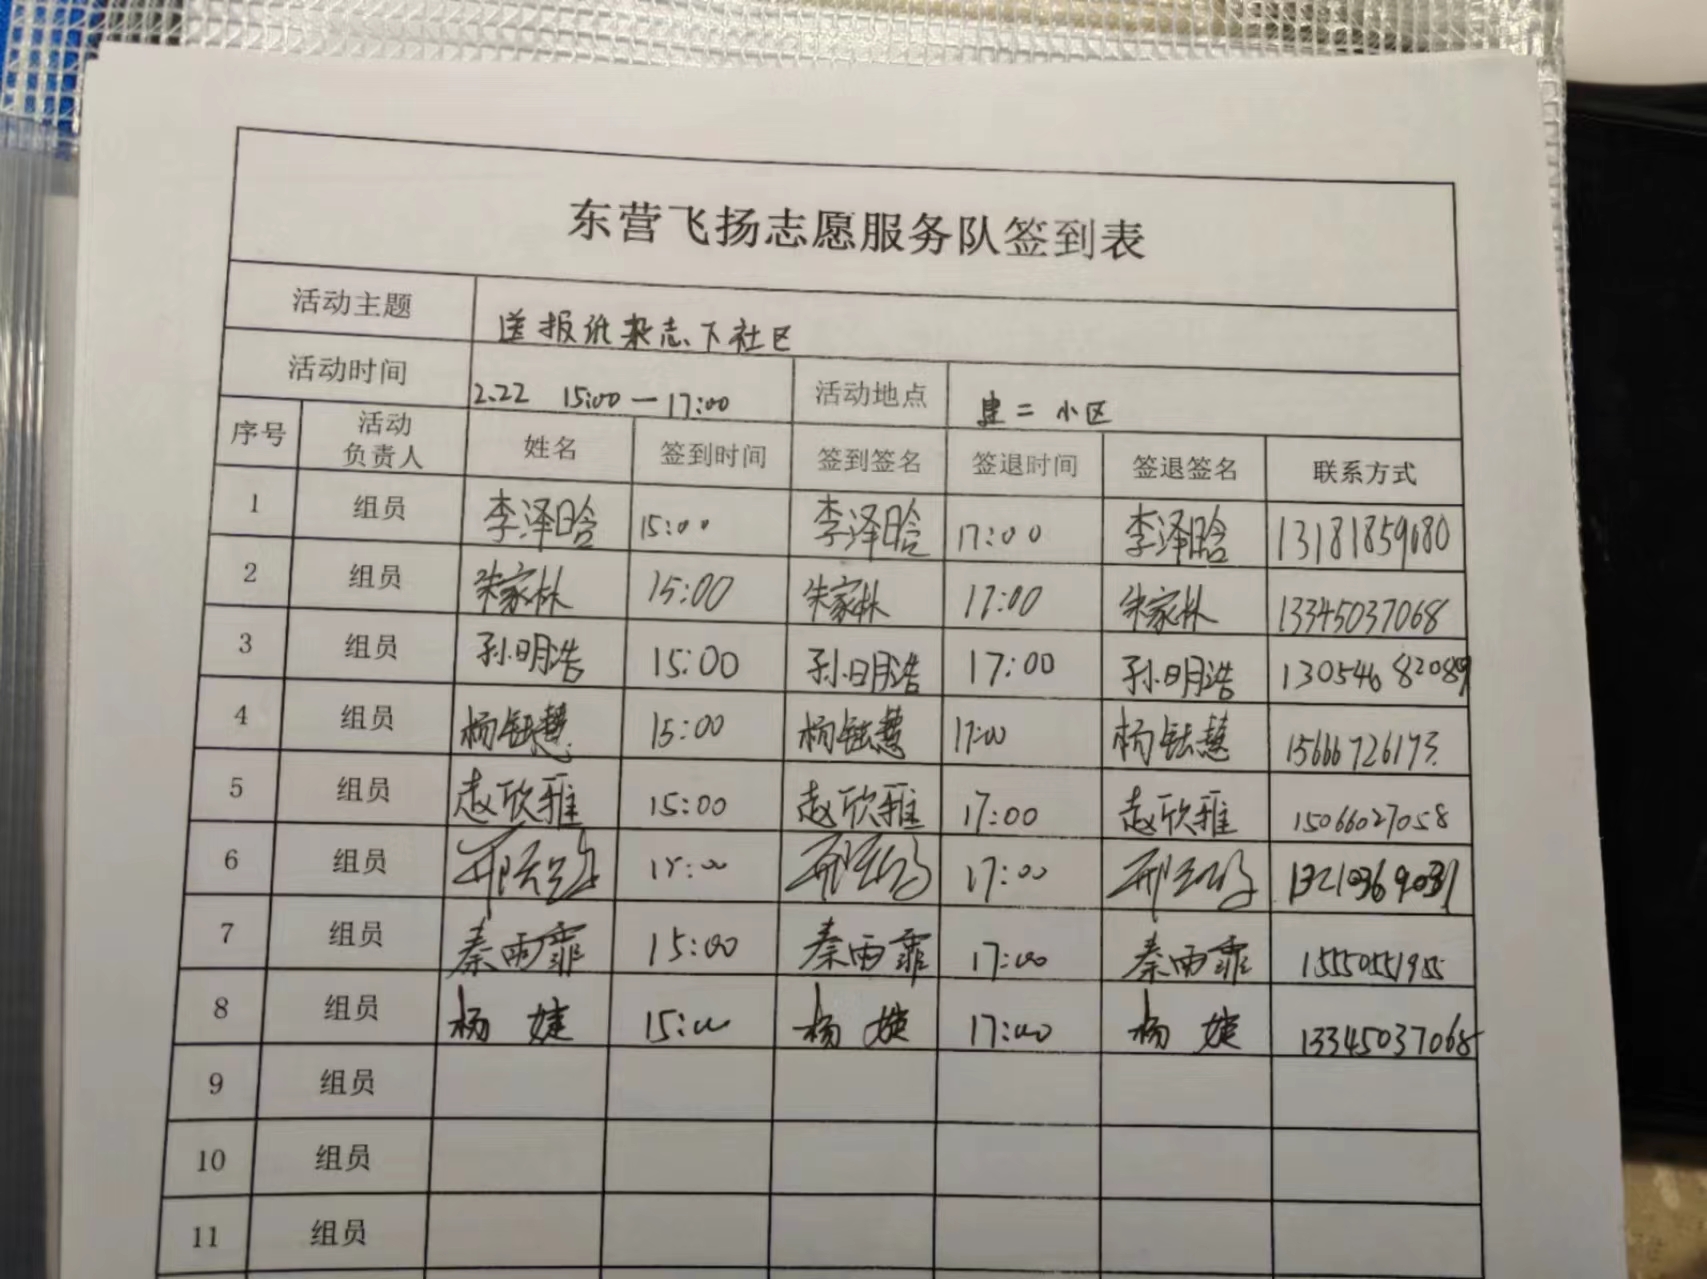 东营飞扬志愿服务队签到表
活动主题 送报纸杂志下社区
活动时间 2.22 15:00—17:00 活动地点 建二小区
序号 活动负责人 姓名 签到时间 签到签名 签退时间 签退签名 联系方式
1 组员 李泽晗 15:00 李泽晗 17:00 李泽晗 13181859680
2 组员 朱家林 15:00 朱家林 17:00 朱家林 13345037068
3 组员 孙明浩 15:00 孙明浩 17:00 孙明浩 13054682089
4 组员 杨钰慧 15:00 杨钰慧 17:00 杨钰慧 15666726173
5 组员 赵欣雅 15:00 赵欣雅 17:00 赵欣雅 15066027058
6 组员 15:00 17:00 13210369031
7 组员 秦雨霏 15:00 秦雨霏 17:00 秦雨霏 15550551955
8 组员 杨婕 15:00 杨婕 17:00 杨婕 13345037068
9 组员
10 组员
11 组员